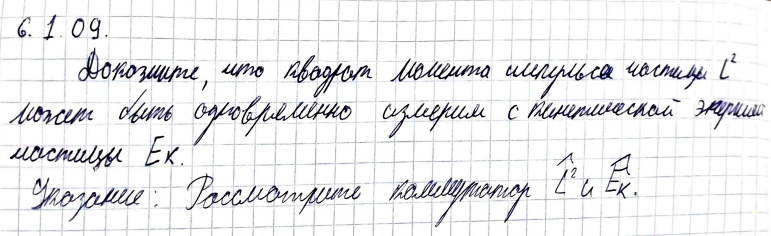 6.1.09.
Докажите, что квадрат момента импульса частицы L²
может быть одновременно измерим с кинетической энергией
частицы Eк.
Указание: Рассмотрите коммутатор L̂² и Êк.